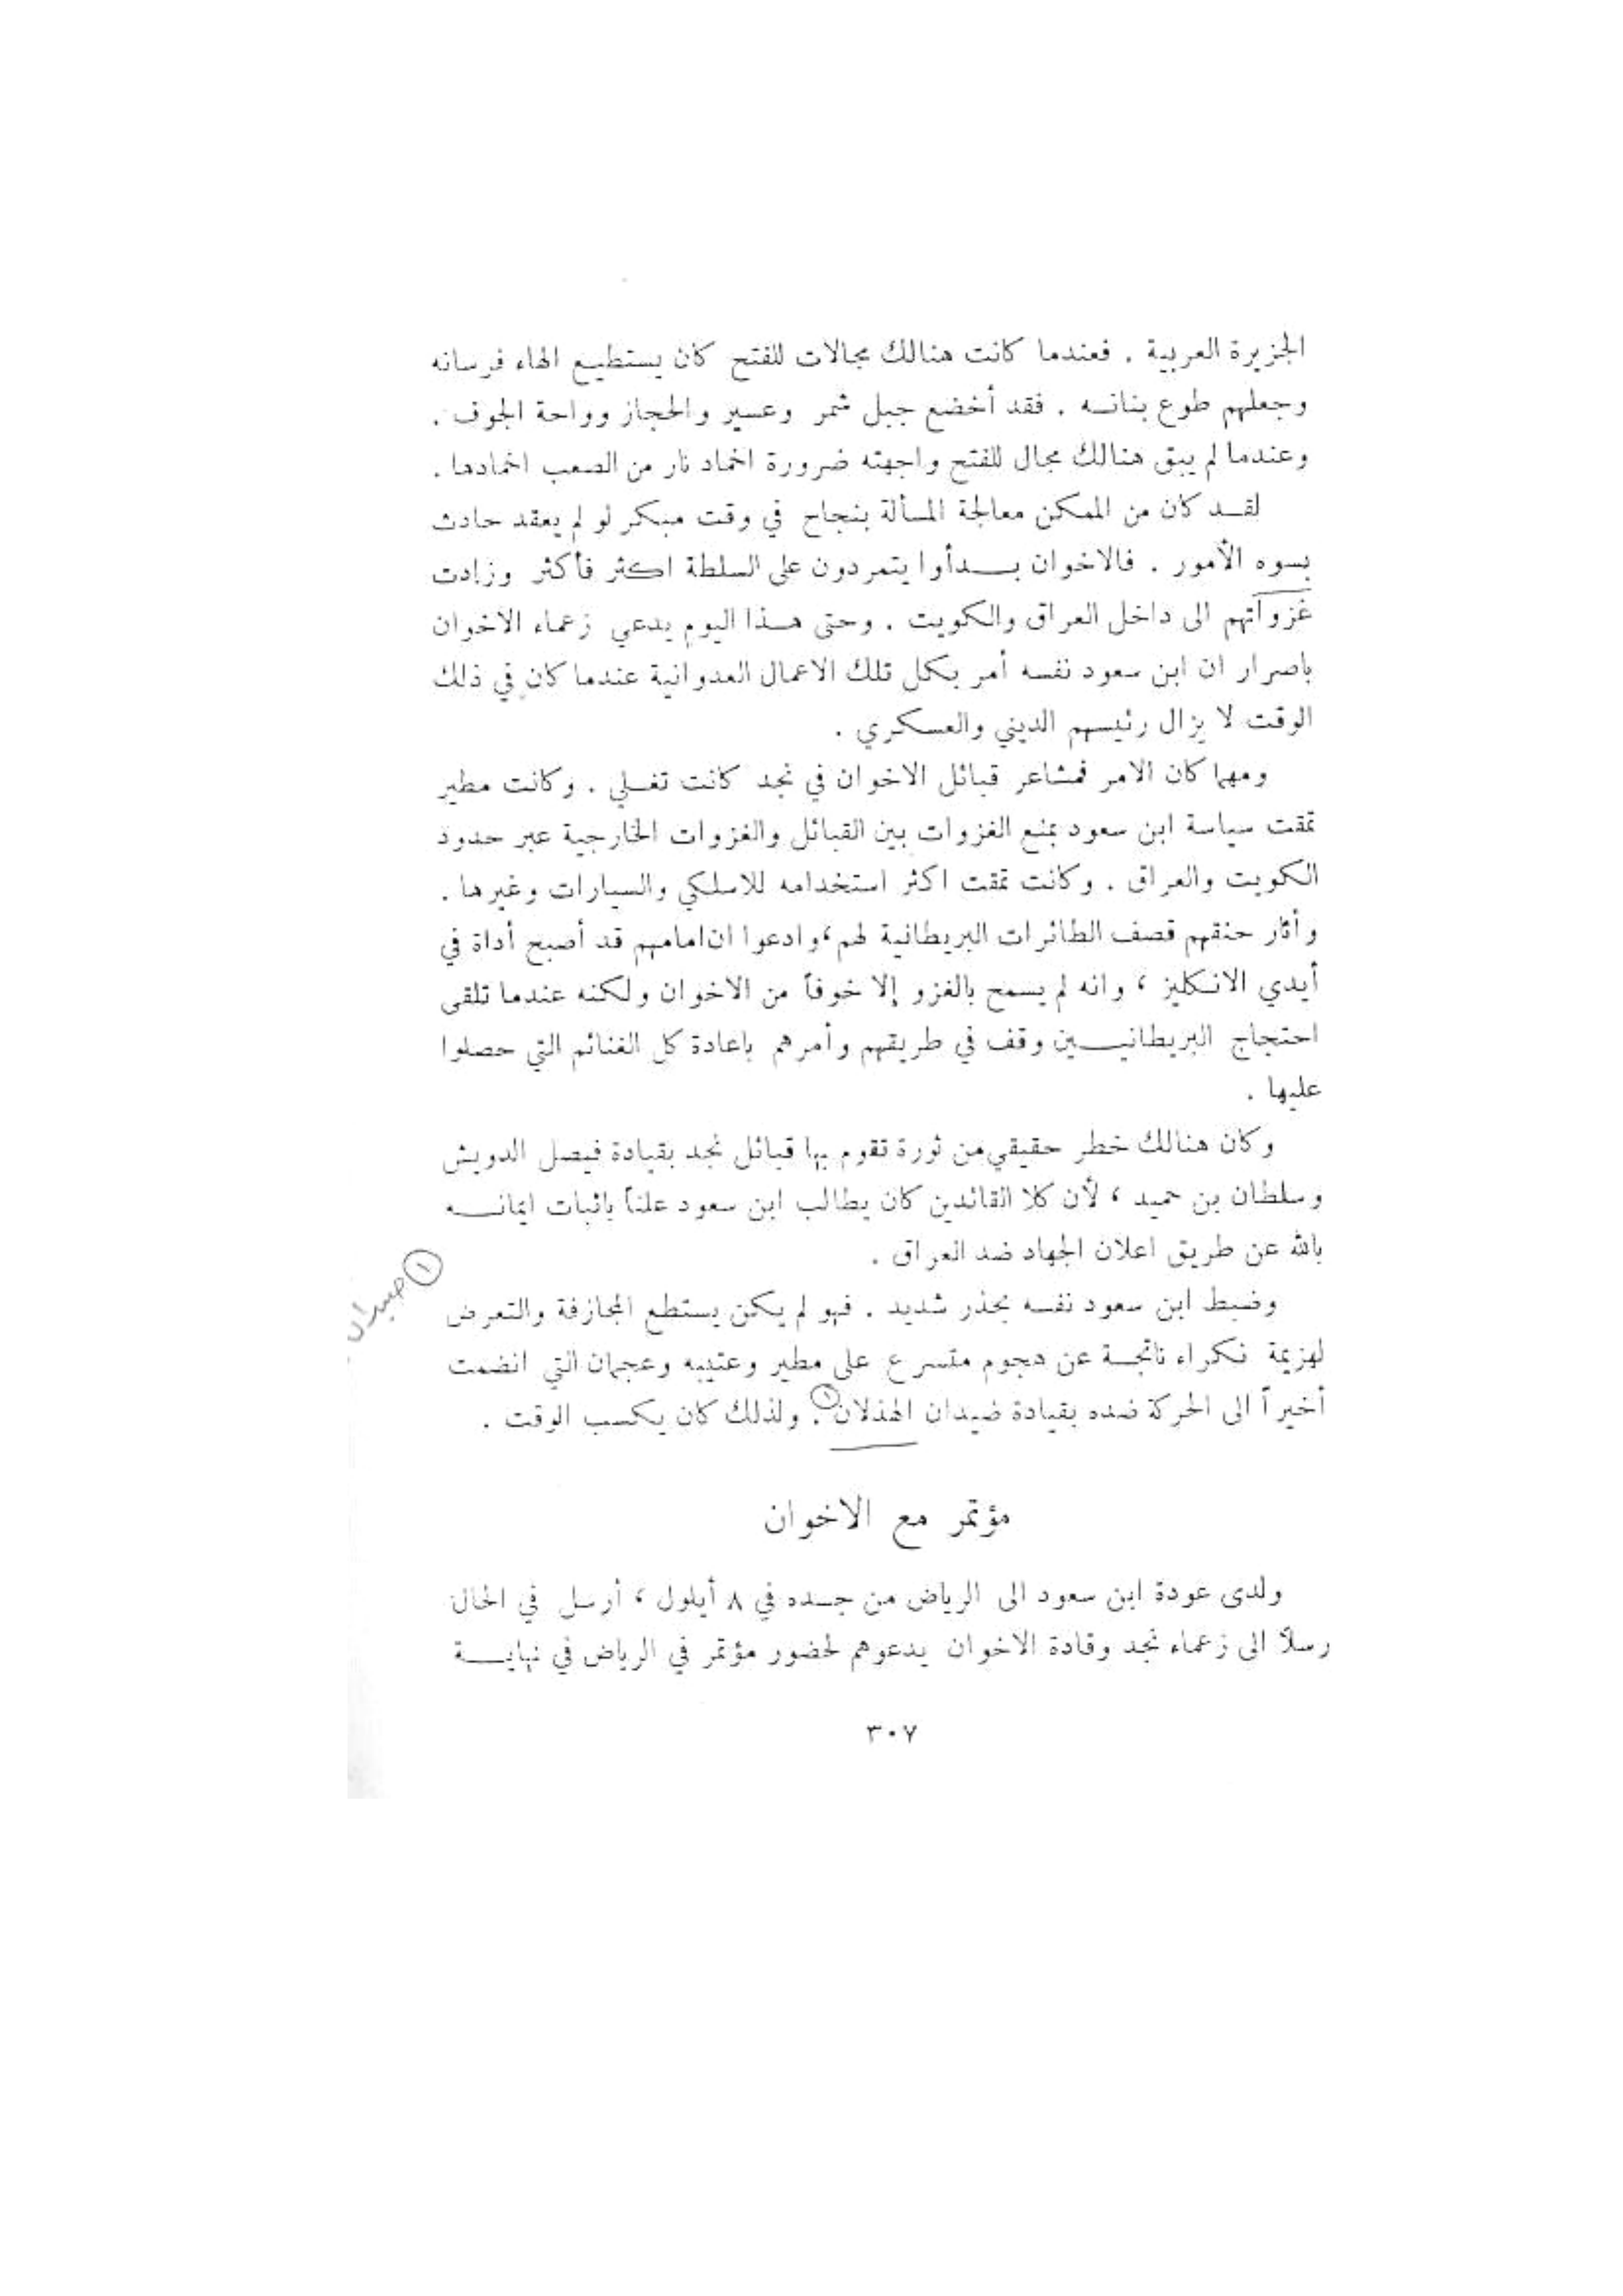 الجزيرة العربية . فعندما كانت هنالك مجالات للفتح كان يستطيع الهاء فرسانه
وجعلهم طوع بنانه . فقد أخضع جبل شمر وعسير والحجاز وواحة الجوف .
وعندما لم يبق هنالك مجال للفتح واجهته ضرورة اخماد نار من الصعب اخمادها .
لقد كان من الممكن معالجة المسألة بنجاح في وقت مبكر لو لم يعقد حادث
بسوه الأمور . فالاخوان بدأوا يتمردون على السلطة اكثر فأكثر وزادت
غزواتهم الى داخل العراق والكويت . وحتى هذا اليوم يدعي زعماء الاخوان
باصرار ان ابن سعود نفسه أمر بكل تلك الاعمال العدوانية عندما كان في ذلك
الوقت لا يزال رئيسهم الديني والعسكري .
ومهما كان الامر فمشاعر قبائل الاخوان في نجد كانت تغلي . وكانت مطير
تمقت سياسة ابن سعود بمنع الغزوات بين القبائل والغزوات الخارجية عبر حدود
الكويت والعراق . وكانت تمقت اكثر استخدامه للاسلكي والسيارات وغيرها .
وأثار حنقهم قصف الطائرات البريطانية لهم ، وادعوا ان امامهم قد أصبح أداة في
أيدي الانكليز ، وانه لم يسمح بالغزو إلا خوفاً من الاخوان ولكنه عندما تلقى
احتجاج البريطانيين وقف في طريقهم وأمرهم باعادة كل الغنائم التي حصلوا
عليها .
وكان هنالك خطر حقيقي من ثورة تقوم بها قبائل نجد بقيادة فيصل الدويش
وسلطان بن حميد ، لأن كلا القائدين كان يطالب ابن سعود علناً باثبات ايمانه
بالله عن طريق اعلان الجهاد ضد العراق .
(١) حيدان
وضبط ابن سعود نفسه بحذر شديد . فهو لم يكن يستطع المجازفة والتعرض
لهزيمة نكراء ناتجة عن هجوم متسرع على مطير وعتيبه وعجمان التي انضمت
أخيراً الى الحركة ضده بقيادة ضيدان الهذلان (١) . ولذلك كان يكسب الوقت .
مؤتمر مع الاخوان
ولدى عودة ابن سعود الى الرياض من جده في ٨ أيلول ، أرسل في الحال
رسلاً الى زعماء نجد وقادة الاخوان يدعوهم لحضور مؤتمر في الرياض في نهاية
٣٠٧